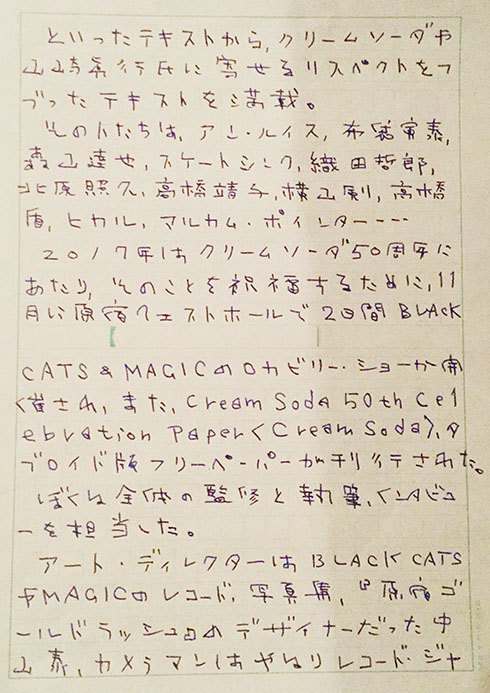 といったテキストから,クリームソーダや
山崎眞行氏に寄せるリスペクトをつ
づったテキストを満載。
その人たちは,アン・ルイス,布袋寅泰,
森山達也,スケートシング,織田哲郎,
北原照久,高橋靖子,横山剣,高橋
盾,ヒカル,マルカム・ポインター……
2017年はクリームソーダ50周年に
あたり,そのことを祝福するために,11
月に原宿クエストホールで2日間BLACK
CATS & MAGICのロカビリー・ショーが開
催され,また,Cream Soda 50th Cel
ebration Paper<Cream Soda>,タ
ブロイド版フリーペーパーが刊行された。
ぼくは全体の監修と執筆,インタビュ
ーを担当した。
アート・ディレクターはBLACK CATS
やMAGICのレコード,写真集,『原宿ゴ
ールドラッシュ』のデザイナーだった中
山泰,カメラマンはやはりレコード・ジャ